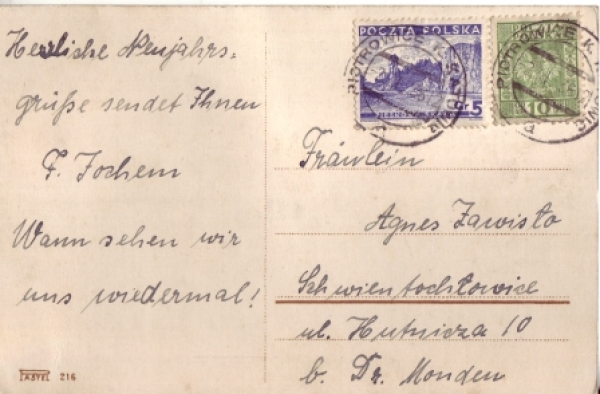 Herzliche Neujahrs=
grüße sendet Ihnen
F. Jochem
Wann sehen wir
uns wiedermal!
POCZTA POLSKA
GR 5
10
PIOTROWICE K.
PIOTROWICE K.
Fräulein
Agnes Zawisło
Schwientochłowice
ul. Hutnicza 10
b. Dr. Monden
216